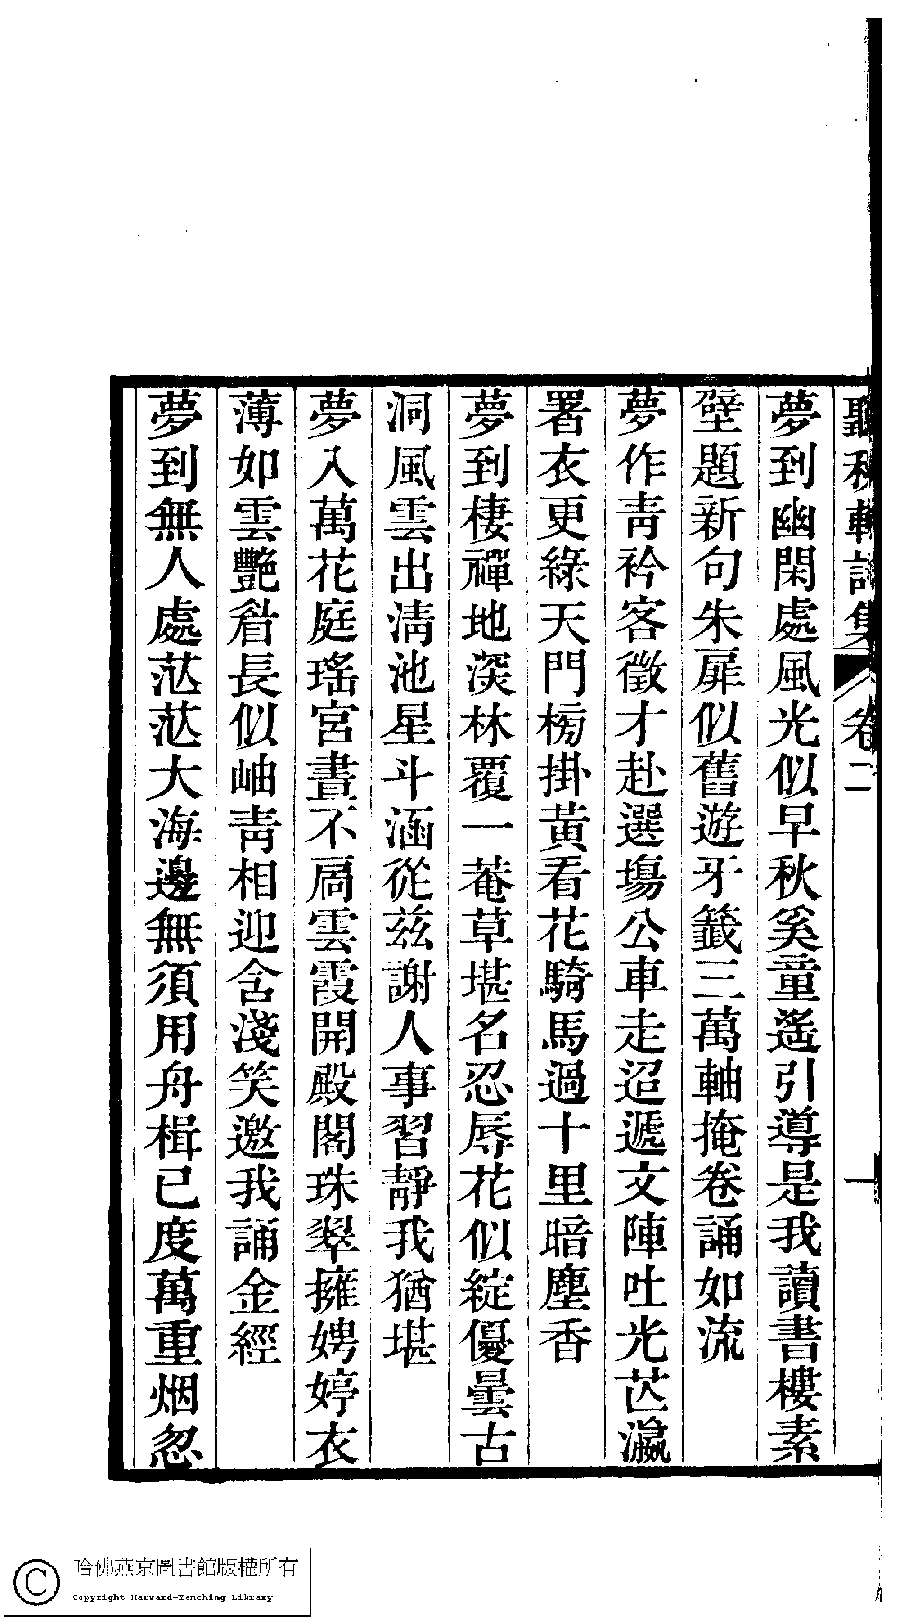 聽秋軒詩集 卷二 一
夢到幽閑處風光似早秋奚童遙引導是我讀書樓素
壁題新句朱扉似舊遊牙籤三萬軸掩卷誦如流
夢作靑衿客徵才赴選塲公車走迢遞文陣吐光芒瀛
署衣更綠天門榜掛黃看花騎馬過十里暗塵香
夢到棲禪地深林覆一菴草堪名忍辱花似綻優曇古
洞風雲出淸池星斗涵從茲謝人事習靜我猶堪
夢入萬花庭瑤宮晝不扃雲霞開殿閣珠翠擁娉婷衣
薄如雲艷眉長似岫靑相迎含淺笑邀我誦金經
夢到無人處茫茫大海邊無須用舟楫已度萬重烟忽
哈佛燕京圖書館版權所有
Copyright Harvard-Yenching Library